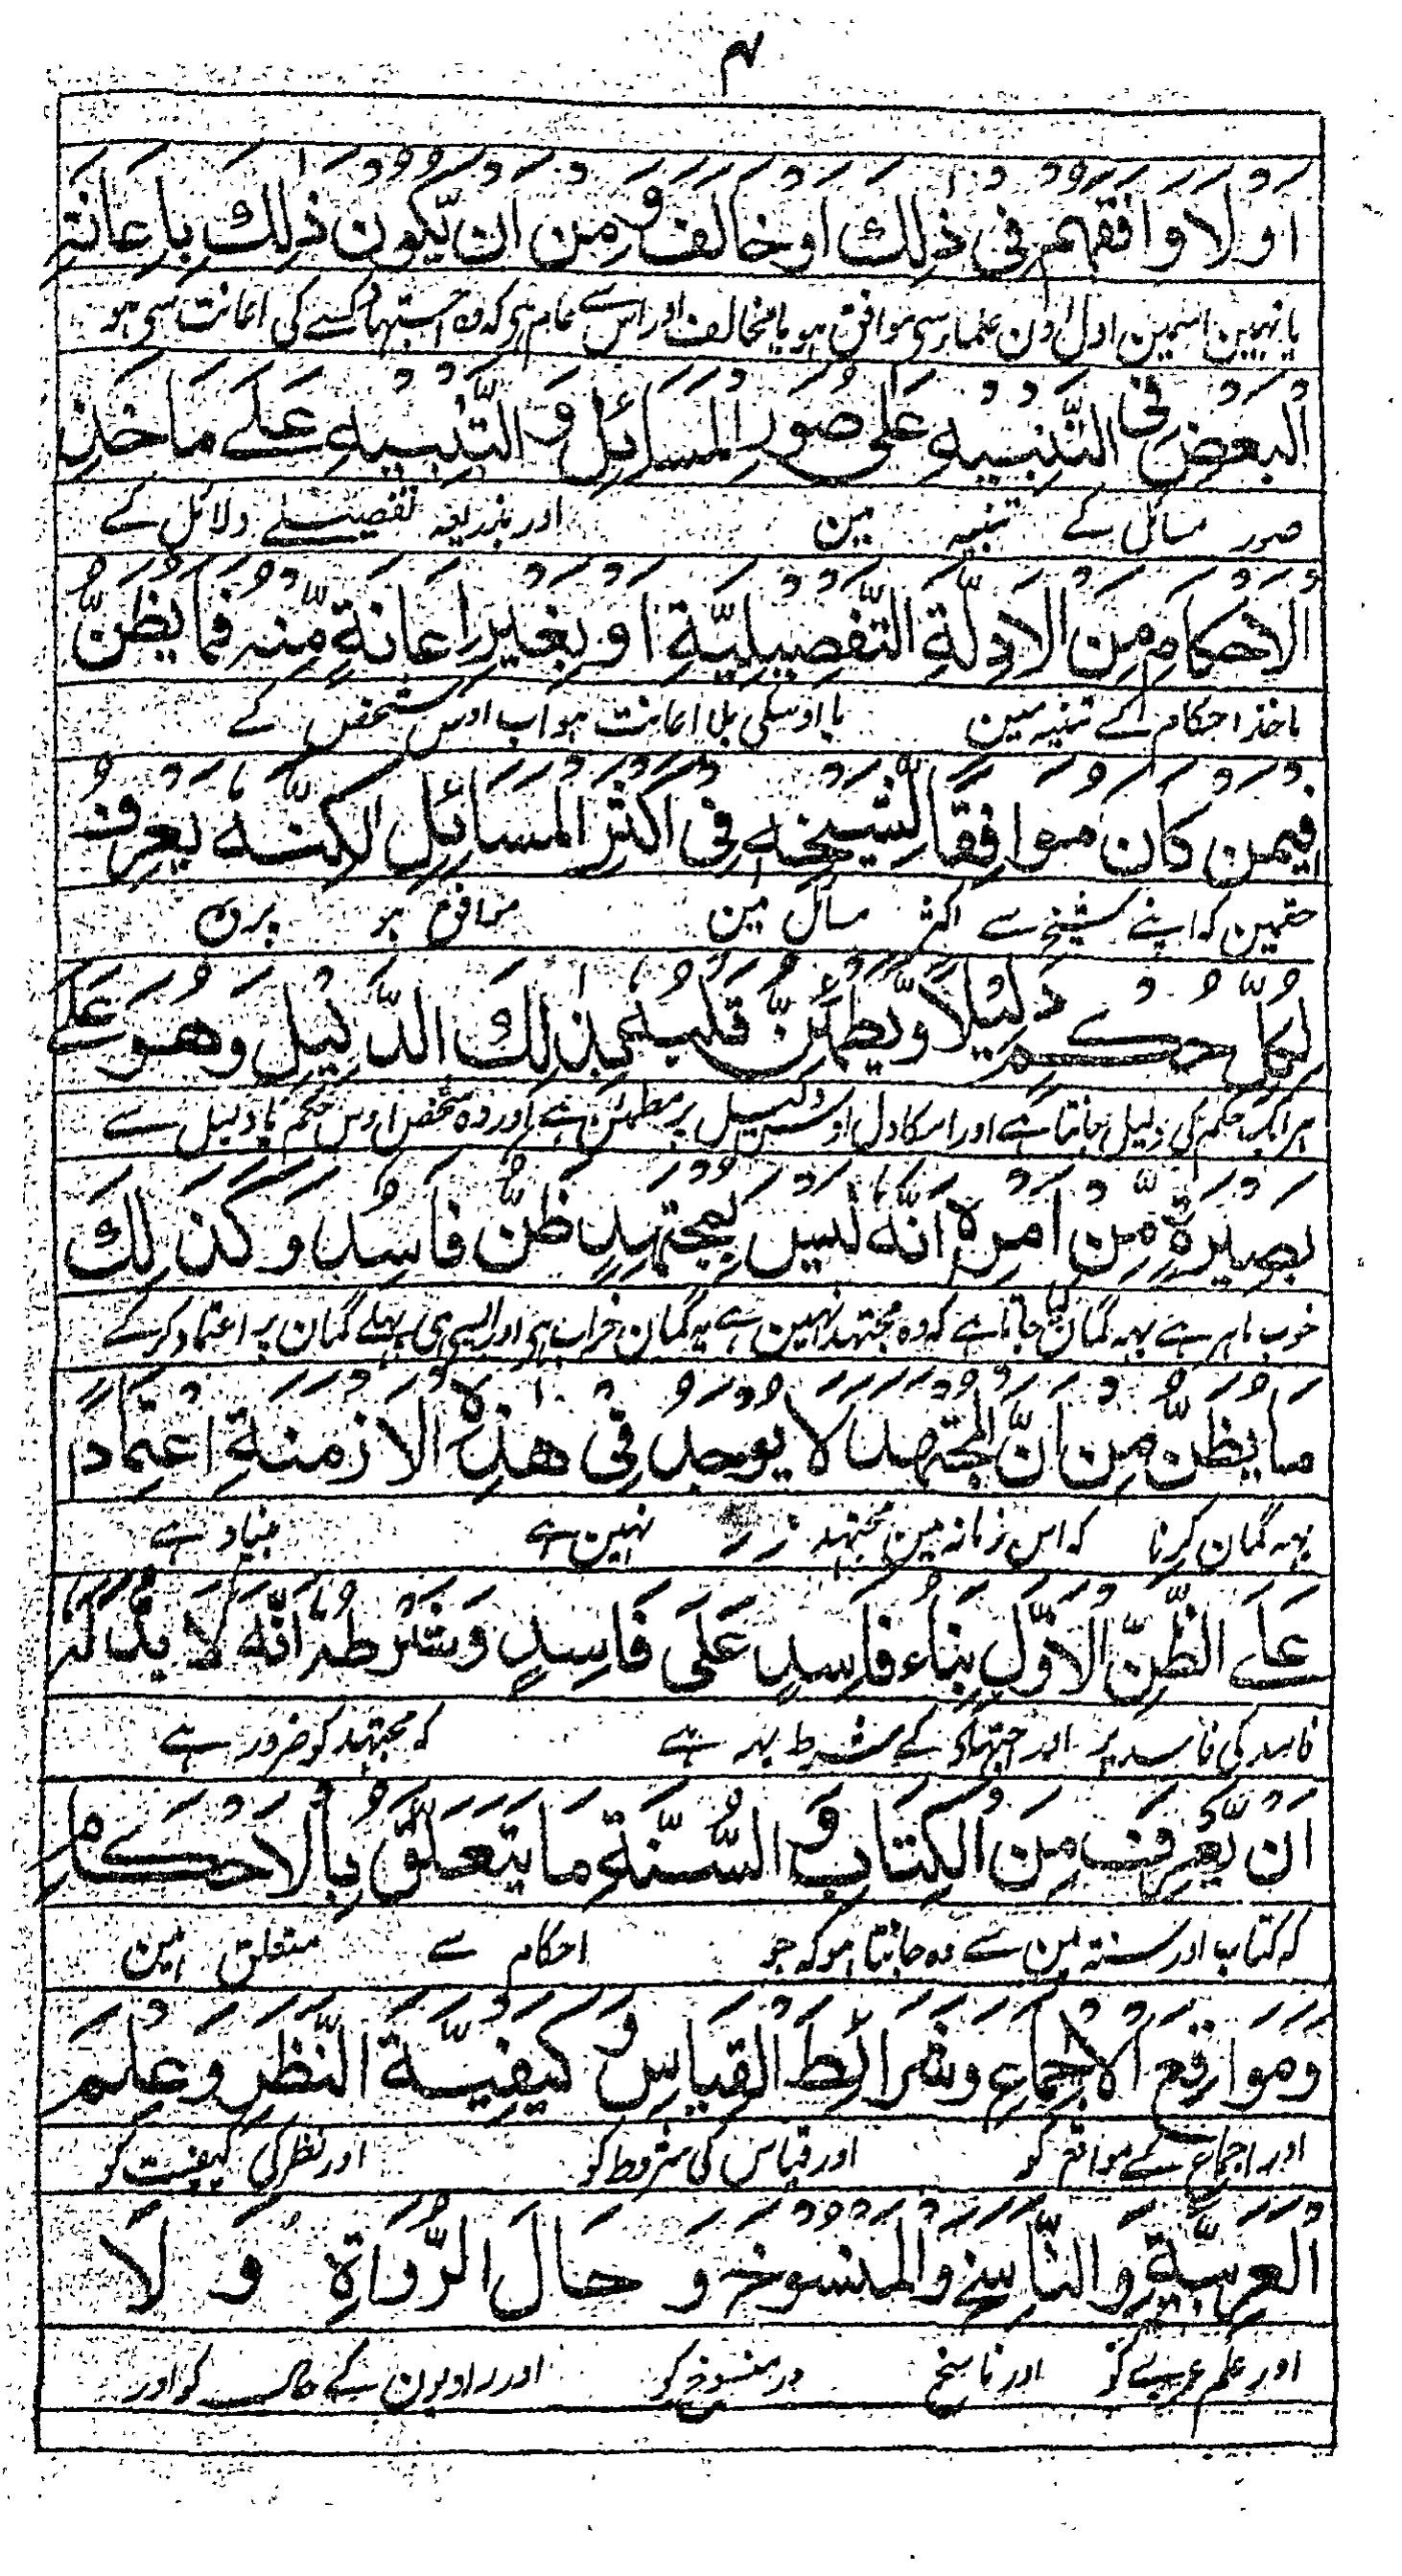 ۴
اَوْ لَا وَافَقَهُمْ فِي ذٰلِكَ اَوْ خَالَفَ وَمِنْ اَنْ يَّكُوْنَ ذٰلِكَ بِاِعَانَةِ
یا نہین اسمین اول اون علماء سی موافق ہو یا مخالف اور اس سے عام ہی کہ وہ اجتہاد کسے کی اعانت سی ہو
الْبَعْضِ فِي التَّنْبِيْهِ عَلٰى صُوَرِ الْمَسَائِلِ وَ التَّنْبِيْهِ عَلٰے مَاخَذِ
صور مسائل کے تنبیہ مین اور بذریعہ تفصیلے دلائل کے
الْاَحْكَامِ مِنَ الْاَدِلَّةِ التَّفْصِيْلِيَّةِ اَوْ بِغَيْرِ اِعَانَةٍ مِّنْهُ فَمَا يُظَنُّ
ماخذ احکام کے تنبیہ مین یا اوسکی بلا اعانت ہو اب اوس شخص کے
فِيْمَنْ كَانَ مُوَافِقًا لِشَيْخِهٖ فِي اَكْثَرِ الْمَسَائِلِ لٰكِنَّهٗ يَعْرِفُ
حقمین کہ اپنے شیخ سے اکثر مسائل مین موافق ہو پر وہ
لِكُلِّ حُكْمٍ دَلِيْلًا وَّيَطْمَئِنُّ قَلْبُهٗ بِذٰلِكَ الدَّلِيْلِ وَهُوَ عَلٰے
ہر ایک حکم کی دلیل جانتا ہے اور اسکا دل اوس دلیل پر مطمئن ہے اور وہ شخص اوس حکم یا دلیل سے
بَصِيْرَةٍ مِّنْ اَمْرِهٖ اَنَّهٗ لَيْسَ بِمُجْتَهِدٍ ظَنٌّ فَاسِدٌ وَكَذٰلِكَ
خوب ماہر ہے یہہ گمان کیا جاتا ہے کہ وہ مجتہد نہین ہے یہ گمان خراب ہی اور ایسی ہی پہلے گمان پر اعتماد کر کے
مَا يُظَنُّ مِنْ اَنَّ الْمُجْتَهِدَ لَا يُوْجَدُ فِي هٰذِهِ الْاَزْمِنَةِ اعْتِمَادًا
یہہ گمان کرنا کہ اس زمانہ مین مجتہد نہین ہے بنیاد ہے
عَلَے الظَّنِّ الْاَوَّلِ بِنَاءُ فَاسِدٍ عَلَى فَاسِدٍ وَشَرْطُهٗ اَنَّهٗ لَا بُدَّ لَهٗ
فاسد کی فاسد پر اور اجتہاد کے شرط یہہ ہے کہ مجتہد کو ضرور ہے
اَنْ يَّعْرِفَ مِنَ الْكِتَابِ وَ السُّنَّةِ مَا يَتَعَلَّقُ بِالْاَحْكَامِ
کہ کتاب اور سنتہ مین سے وہ جانتا ہو کہ جو احکام سے متعلق ہین
وَمَوَاقِعَ الْاِجْمَاعِ وَشَرَائِطَ الْقِيَاسِ وَ كَيْفِيَّةَ النَّظْرِ وَعِلْمَ
اور اجماع کے مواقع کو اور قیاس کی شروط کو اور نظر کی کیفیت کو
الْعَرَبِيَّةِ وَالنَّاسِخِ وَالْمَنْسُوْخِ وَ حَالَ الرُّوَاةِ وَ لَا
اور علم عربی کو اور ناسخ ور منسوخ کو اور راویون کے حال کو اور